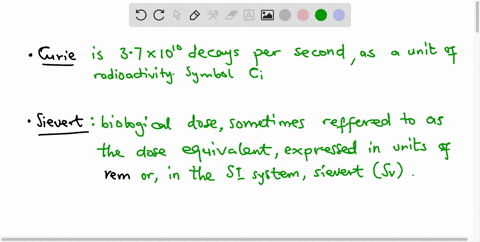 • Curie is 3.7×10¹⁰ decays per second, as a unit of
radioactivity. Symbol Ci
• Sievert: biological dose, sometimes reffered to as
the dose equivalent, expressed in units of
rem or, in the SI system, sievert (Sv).